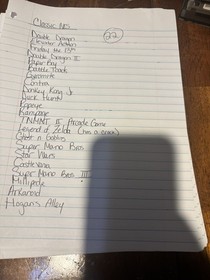 Classic NES
22
Double Dragon
Elevator Action
Friday the 13th
Double Dragon II
Paper Boy
Battle Toads
Gyromite
Contra
Donkey Kong Jr
Duck Hunt
Popeye
Rampage
TMNT II Arcade Game
Legend of Zelda (has a crack)
Ghosts n Goblins
Super Mario Bros
Star Wars
Castlevania
Super Mario Bros III
Millipede
Arkanoid
Hogans Alley